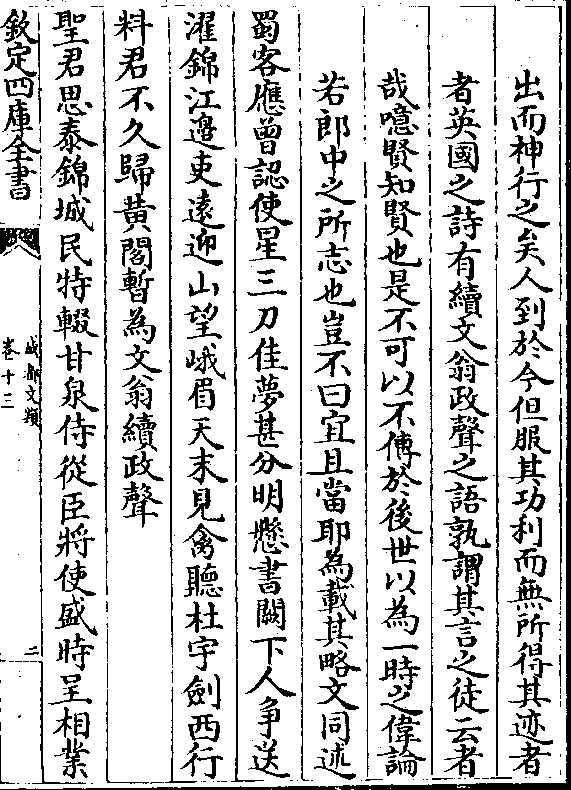 出而神行之矣人到於今但服其功利而無所得其迹者
者英國之詩有續文翁政聲之語孰謂其言之徒云者
哉噫賢知賢也是不可以不傳於後世以為一時之偉論
若郎中之所志也豈不曰宜且當耶為載其略文同述
蜀客應曾認使星三刀佳夢甚分明懸書闕下人爭送
濯錦江邊吏遠迎山望峨眉天末見禽聽杜宇劍西行
料君不久歸黃閣暫為文翁續政聲
聖君思泰錦城民特輟甘泉侍從臣將使盛時呈相業
欽定四庫全書
成都文類
卷十三
二